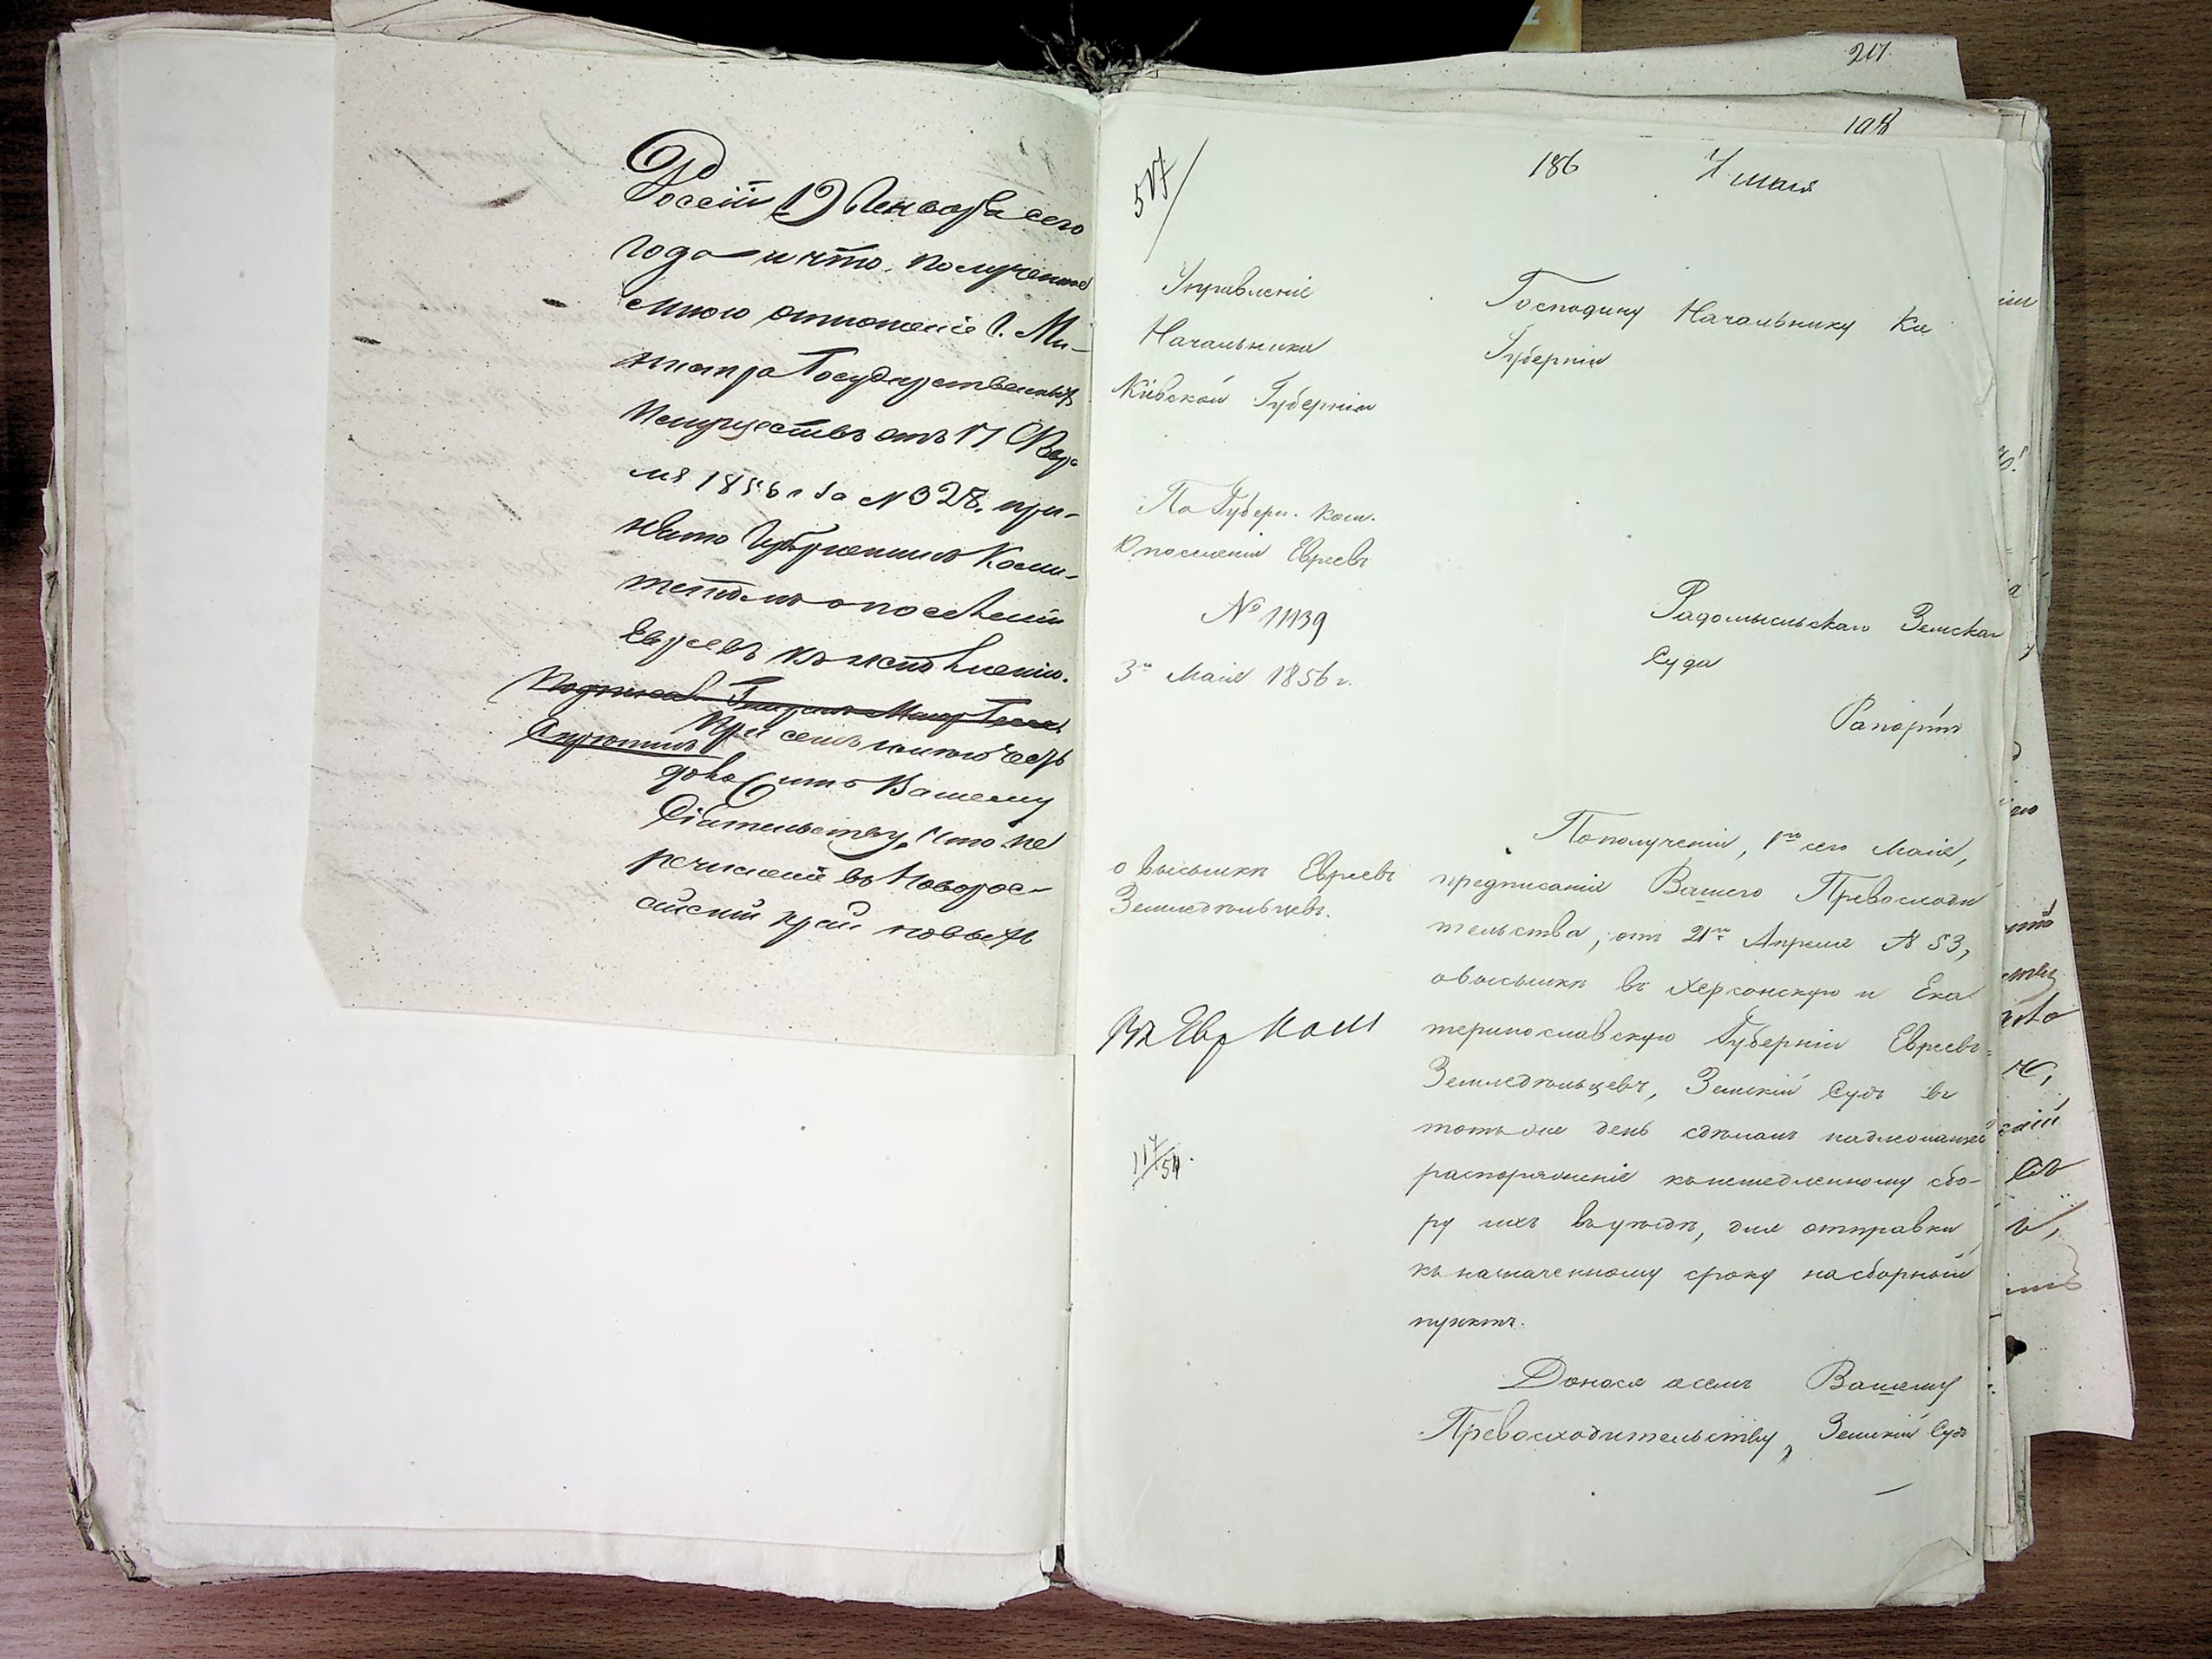 Россіи 19 Января сего
года и что полученное
мною отношеніе Г. Ми-
нистра Государственныхъ
Имуществъ отъ 17 Фев
1856 г за № 328. при-
нято Губернскимъ Коми-
тетомъ о поселеніи
Евреевъ къ исполненію.
При семъ имею честь
доносить Вашему
Сіятельству, что пе
речисленіе въ Новорос-
сійскій край
217
198
517/
186
7 мая
Управленіе
Начальника
Кіевской Губерніи
По Губерн. ком.
О поселеніи Евреевъ
№ 11139
3го Маія 1856 г.
о высылкѣ Евреевъ
Земледѣльцевъ.
Въ Евр Ком
117/54.
Господину Начальнику Кіе
Губерніи
Радомысльскаго Земскаго
Суда
Рапортъ
По полученіи, 1го сего Маія,
предписанія Вашего Превосходи
тельства, отъ 21го Апрѣля № 53,
о высылкѣ въ Херсонскую и Ека
теринославскую Губерніи Евреевъ-
Земледѣльцевъ, Земскій Судъ въ
тотъ же день сдѣлалъ надлежащее
распоряженіе къ немедленному сбо-
ру ихъ въ уѣздѣ, для отправки
къ назначенному сроку на сборный
пунктъ.
Донося о семъ Вашему
Превосходительству, Земскій Судъ